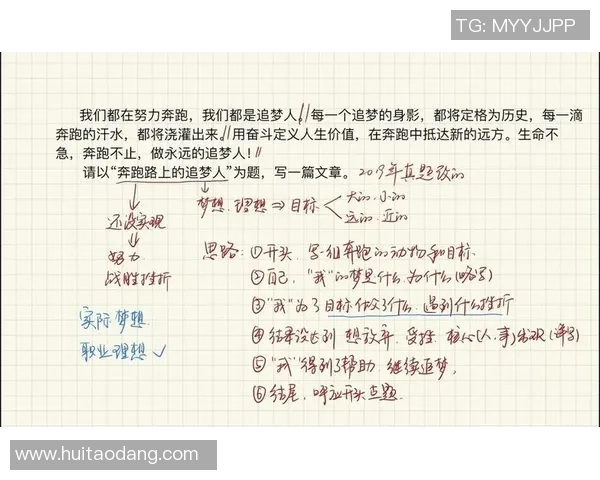 TG: MYYJJPP
我们都在努力奔跑，我们都是追梦人。//每一个追梦的身影，都将定格为历史，每一滴
奔跑的汗水，都将浇灌出来。//用奋斗定义人生价值，在奔跑中抵达新的远方。生命不
急，奔跑不止，做永远的追梦人！//
请以“奔跑路上的追梦人”为题，写一篇文章。 2019年真题改的
还没实现
努力
战胜挫折
梦想.理想⇒目标
大的.小的
远的.近的
实际梦想.
职业理想✓
思路：①开头，写一组奔跑的动物和目标.
②自己，“我”的梦是什么.为什么(略写)
③“我”为了目标做了什么，遇到什么挫折
④结果没达到 想放弃. 受挫. 核心(人.事)出现(详写)
⑤“我”得到了帮助. 继续追梦.
⑥结尾. 呼应开头点题.
www.huitaodang.com